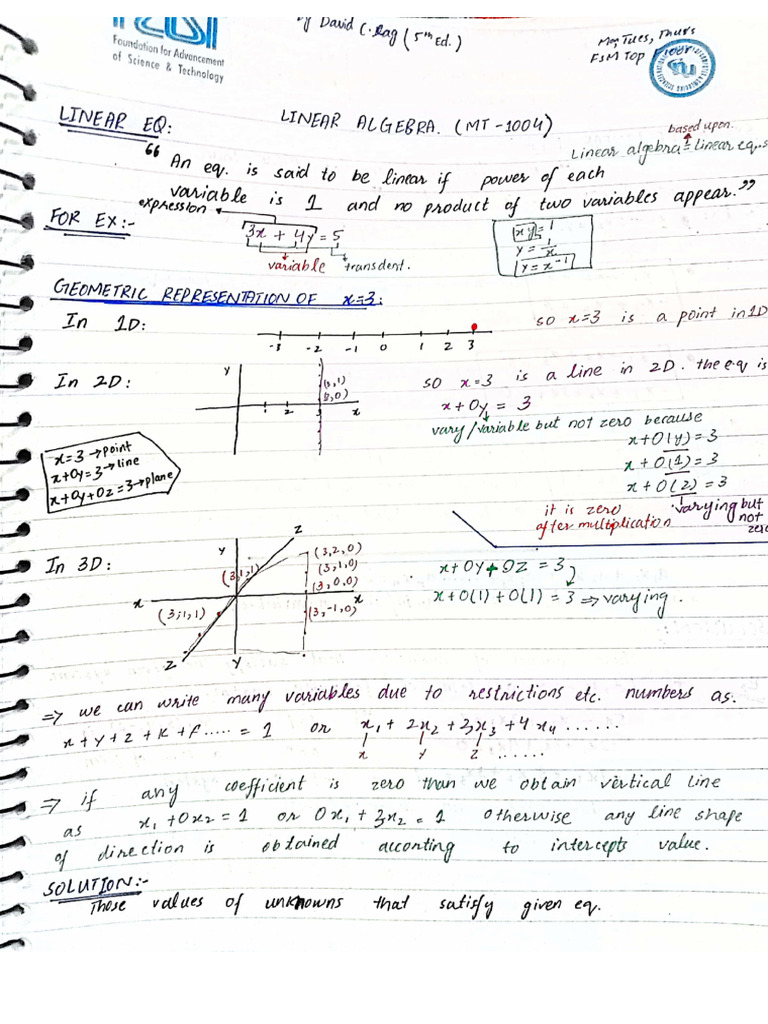 Foundation for Advancement
of Science & Technology
by David C. Lay (5th Ed.)
Mon Tues, Thurs
FSM Top Floor
LINEAR ALGEBRA. (MT-1004)
LINEAR EQ:
based upon.
Linear algebra = linear eq.s
"An eq. is said to be linear if power of each
variable is 1 and no product of two variables appear."
expression
FOR EX:-
3x + 4y = 5
variable
transdent.
xy = 1
y = 1/x
y = x⁻¹
GEOMETRIC REPRESENTATION OF x=3:
In 1D:
-3 -2 -1 0 1 2 3
so x=3 is a point in 1D
In 2D:
y
(3,1)
(3,0)
1 2 x
so x=3 is a line in 2D. the eq is
x + 0y = 3
vary/variable but not zero because
x+0(y)=3
x+0(1)=3
x+0(2)=3
varying but
not
zero
it is zero
after multiplication
x=3→point
x+0y=3→line
x+0y+0z=3→plane
In 3D:
y
z
(3,2,0)
(3,1,0)
(3,0,0)
(3,-1,0)
(3,1,1)
(3,1,1)
x
x
z
y
x+0y+0z = 3
x+0(1)+0(1) = 3 ⇒ varying.
⇒ we can write many variables due to restrictions etc. numbers as.
x+y+z+k+f..... = 1 or x₁ + 2x₂ + 3x₃ + 4x₄ ......
x y z ......
⇒ if any coefficient is zero than we obtain vertical line
as x₁+0x₂=1 or 0x₁+3x₂=1 otherwise any line shape
of direction is obtained acconting to intercepts value.
SOLUTION:-
Those values of unknowns that satisfy given eq.